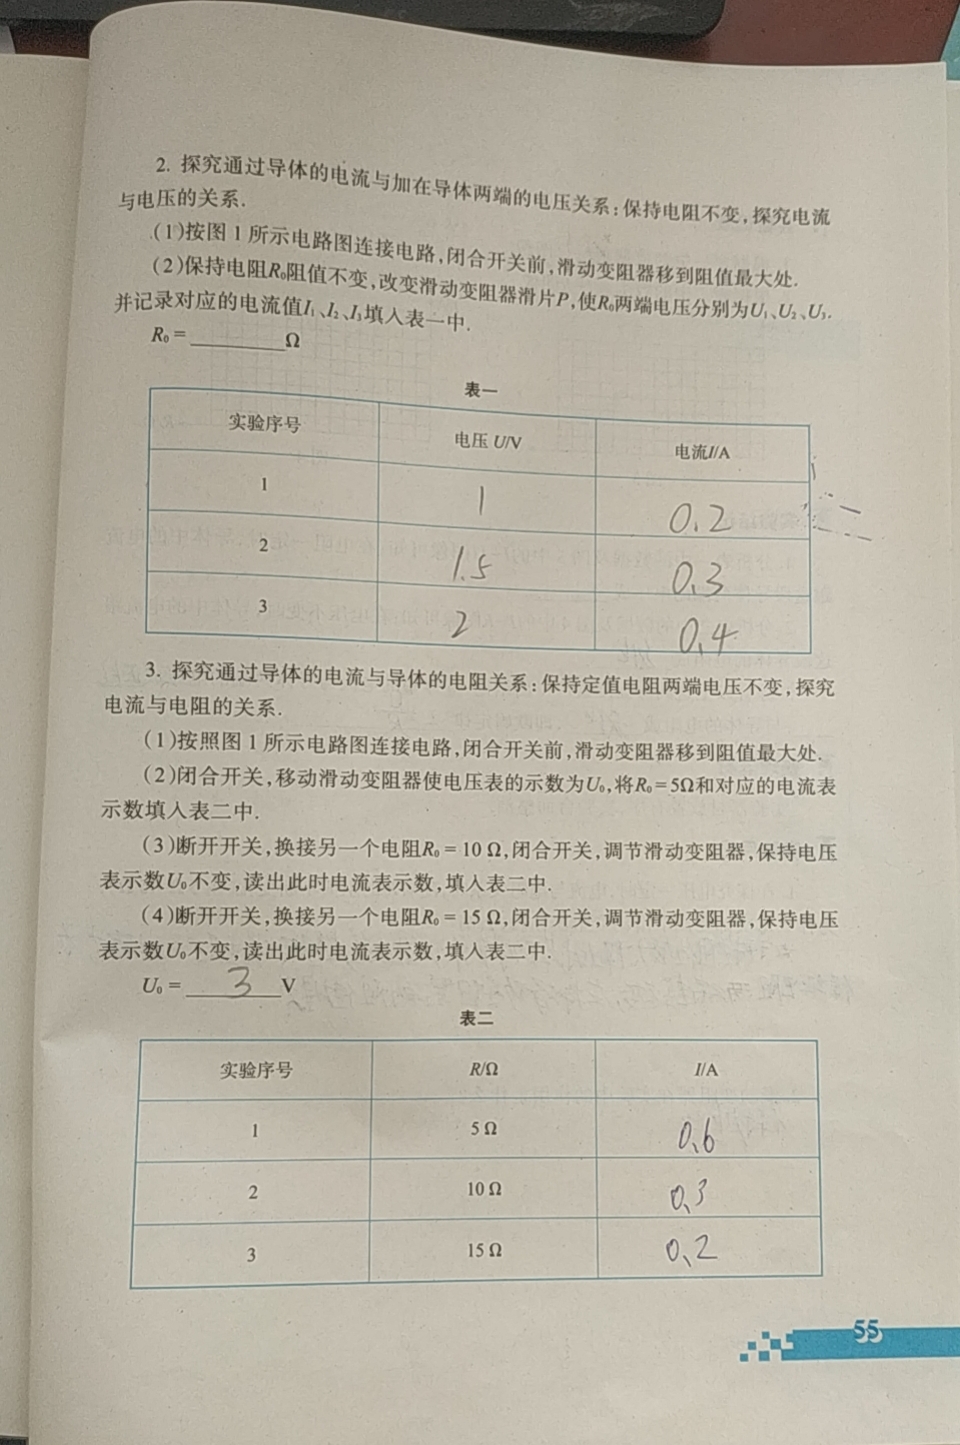 2. 探究通过导体的电流与加在导体两端的电压关系:保持电阻不变,探究电流
与电压的关系.
(1)按图1所示电路图连接电路,闭合开关前,滑动变阻器移到阻值最大处.
(2)保持电阻R₀阻值不变,改变滑动变阻器滑片P,使R₀两端电压分别为U₁、U₂、U₃.
并记录对应的电流值I₁、I₂、I₃填入表一中.
R₀=________Ω
表一
实验序号 电压 U/V 电流I/A
1 1 0.2
2 1.5 0.3
3 2 0.4
3. 探究通过导体的电流与导体的电阻关系:保持定值电阻两端电压不变,探究
电流与电阻的关系.
(1)按照图1所示电路图连接电路,闭合开关前,滑动变阻器移到阻值最大处.
(2)闭合开关,移动滑动变阻器使电压表的示数为U₀,将R₀=5Ω和对应的电流表
示数填入表二中.
(3)断开开关,换接另一个电阻R₀=10 Ω,闭合开关,调节滑动变阻器,保持电压
表示数U₀不变,读出此时电流表示数,填入表二中.
(4)断开开关,换接另一个电阻R₀=15 Ω,闭合开关,调节滑动变阻器,保持电压
表示数U₀不变,读出此时电流表示数,填入表二中.
U₀=3V
表二
实验序号 R/Ω I/A
1 5 Ω 0.6
2 10 Ω 0.3
3 15 Ω 0.2
55